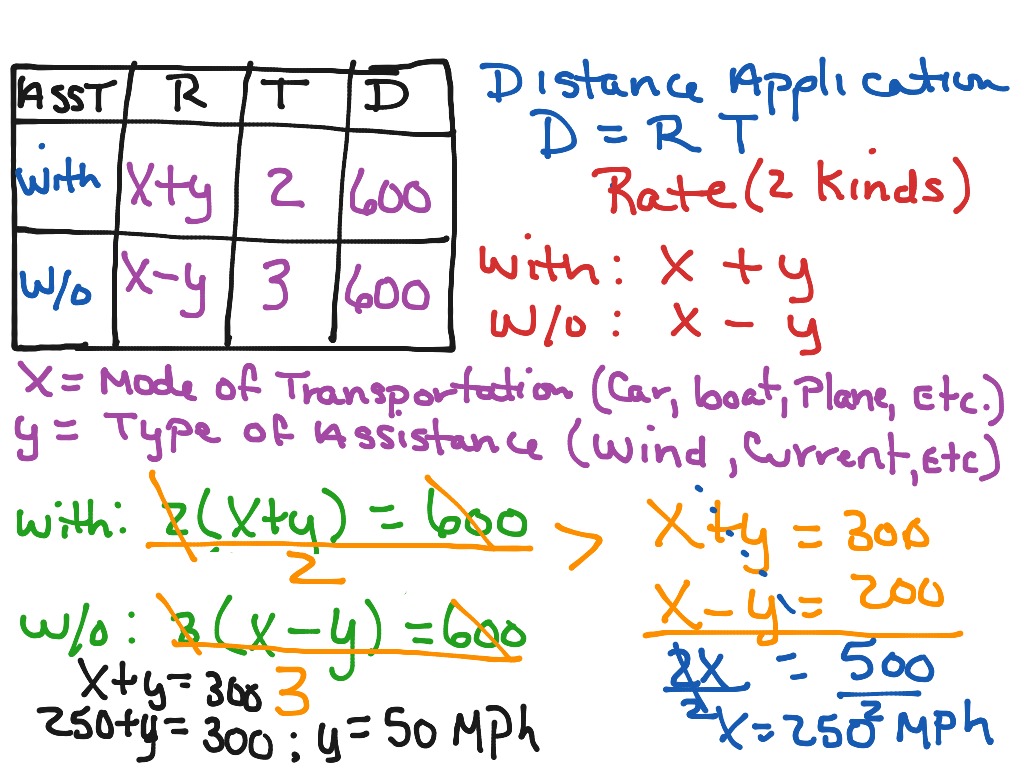 AssT R T D
with x+y 2 600
w/o x-y 3 600
Distance Application
D = R T
Rate (2 Kinds)
with: x + y
w/o: x - y
x = Mode of Transportation (Car, boat, Plane, Etc.)
y = Type of Assistance (Wind, Current, Etc)
with: 2(x+y) = 600
2
w/o: 3(x-y) = 600
3
x+y = 300
x-y = 200
2x = 500
2 2
x = 250 MPh
x+y = 300
250+y = 300; y = 50 MPh